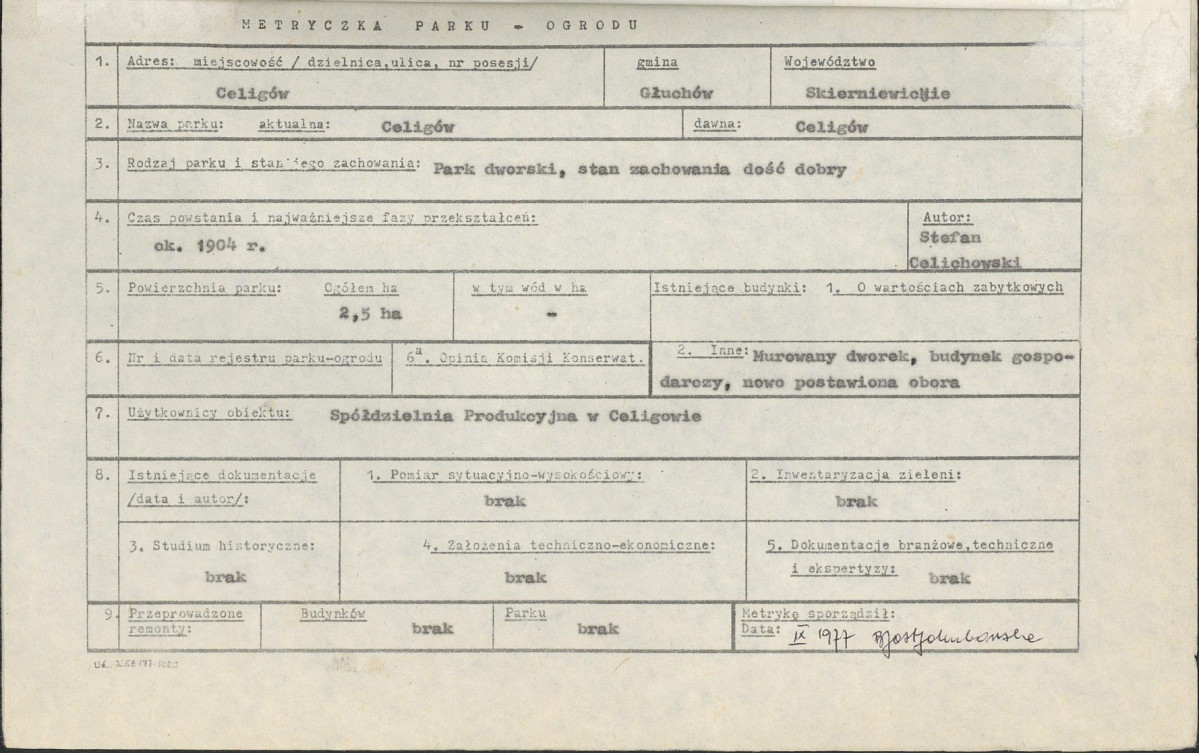 METRYCZKA PARKU - OGRODU
1. Adres: miejscowość / dzielnica,ulica, nr posesji/ gmina Województwo
Celigów Głuchów Skierniewickie
2. Nazwa parku: aktualna: Celigów dawna: Celigów
3. Rodzaj parku i stan jego zachowania: Park dworski, stan zachowania dość dobry
4. Czas powstania i najważniejsze fazy przekształceń: Autor:
ok. 1904 r. Stefan
Celichowski
5. Powierzchnia parku: Ogółem ha w tym wód w ha Istniejące budynki: 1. O wartościach zabytkowych
2,5 ha -
6. Nr i data rejestru parku-ogrodu 6a. Opinia Komisji Konserwat. 2. Inne: Murowany dworek, budynek gospo-
darczy, nowo postawiona obora
7. Użytkownicy obiektu: Spółdzielnia Produkcyjna w Celigowie
8. Istniejące dokumentacje 1. Pomiar sytuacyjno-wysokościowy: 2. Inwentaryzacja zieleni:
/data i autor/: brak brak
3. Studium historyczne: 4. Założenia techniczno-ekonomiczne: 5. Dokumentacje branżowe,techniczne
i ekspertyzy: brak
brak brak
9. Przeprowadzone Budynków Parku Metrykę sporządził:
remonty: brak brak Data: IX 1977